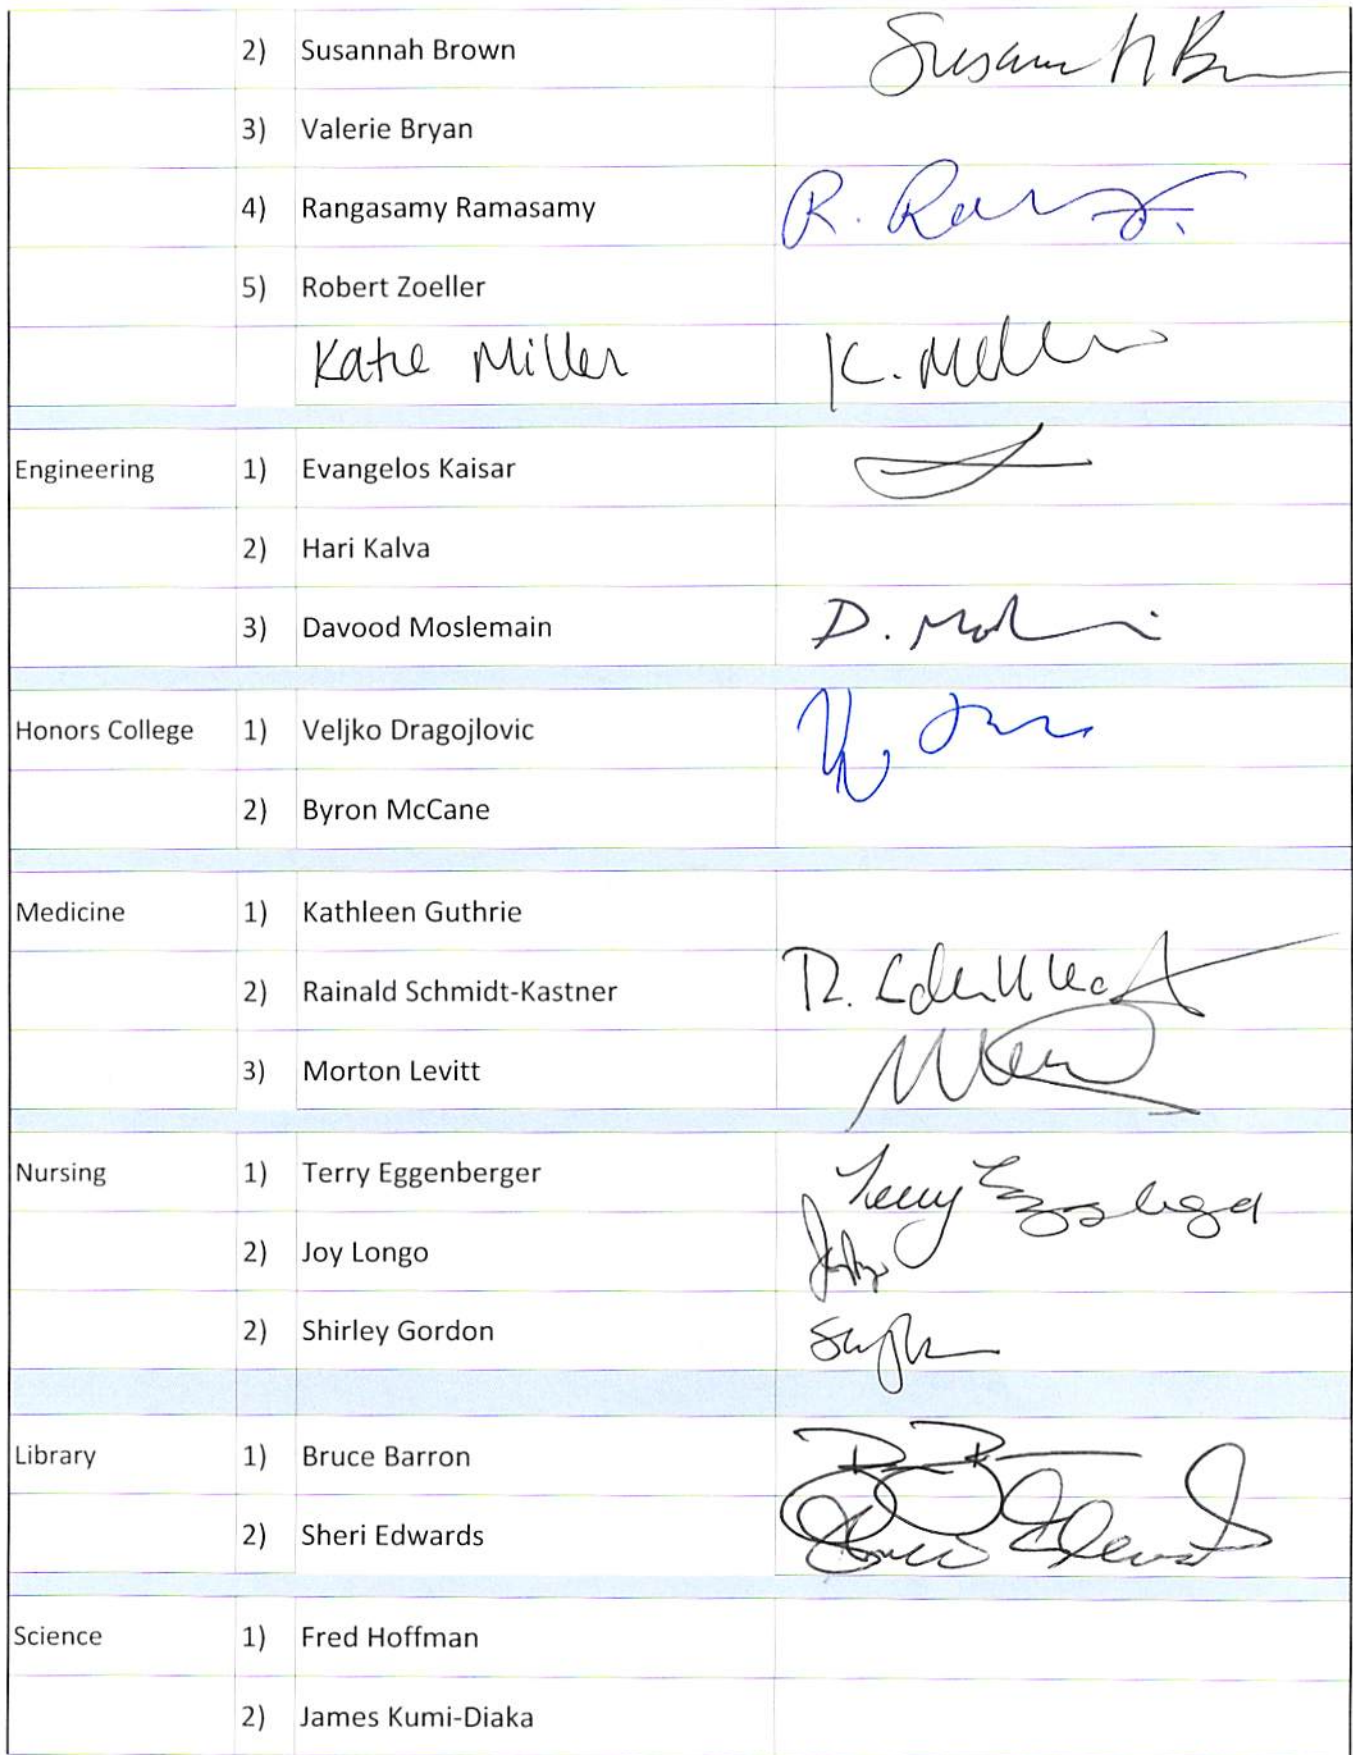 2) Susannah Brown
3) Valerie Bryan
4) Rangasamy Ramasamy
5) Robert Zoeller
Katie Miller K. Miller
Engineering 1) Evangelos Kaisar
2) Hari Kalva
3) Davood Moslemain
Honors College 1) Veljko Dragojlovic
2) Byron McCane
Medicine 1) Kathleen Guthrie
2) Rainald Schmidt-Kastner
3) Morton Levitt
Nursing 1) Terry Eggenberger
2) Joy Longo
2) Shirley Gordon
Library 1) Bruce Barron
2) Sheri Edwards
Science 1) Fred Hoffman
2) James Kumi-Diaka